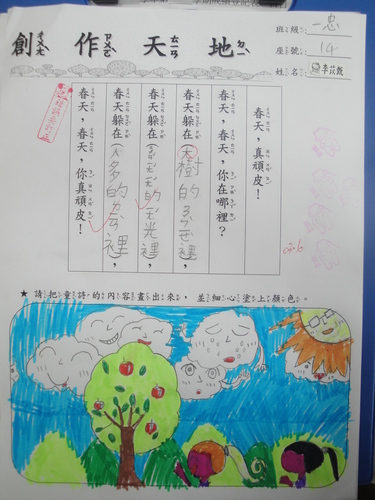 創作天地
班級：一忠
座號：14
姓名：李
春天，真頑皮！
春天，春天，你在哪裡？
春天躲在（大樹的裡，
春天躲在（的光裡，
春天躲在（大多的裡，
春天，春天，你真頑皮！
★請把童詩的內容畫出來，並細心塗上顏色。